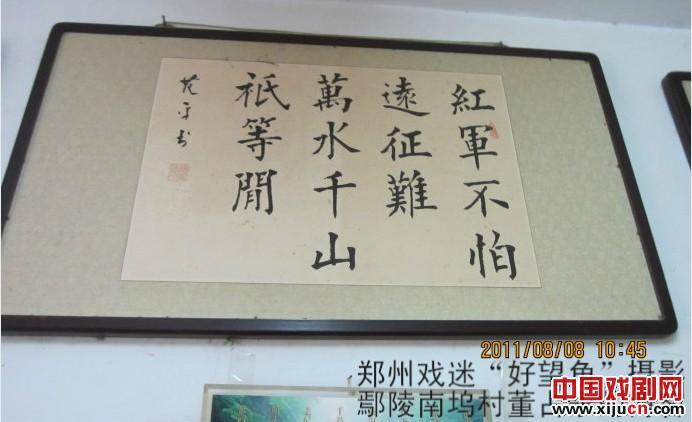 紅軍不怕
遠征難
萬水千山
祇等閒
2011/08/08 10:45
郑州戏迷“好望角”摄影
鄢陵南坞村董占
中国戏剧网
www.xijucn.com